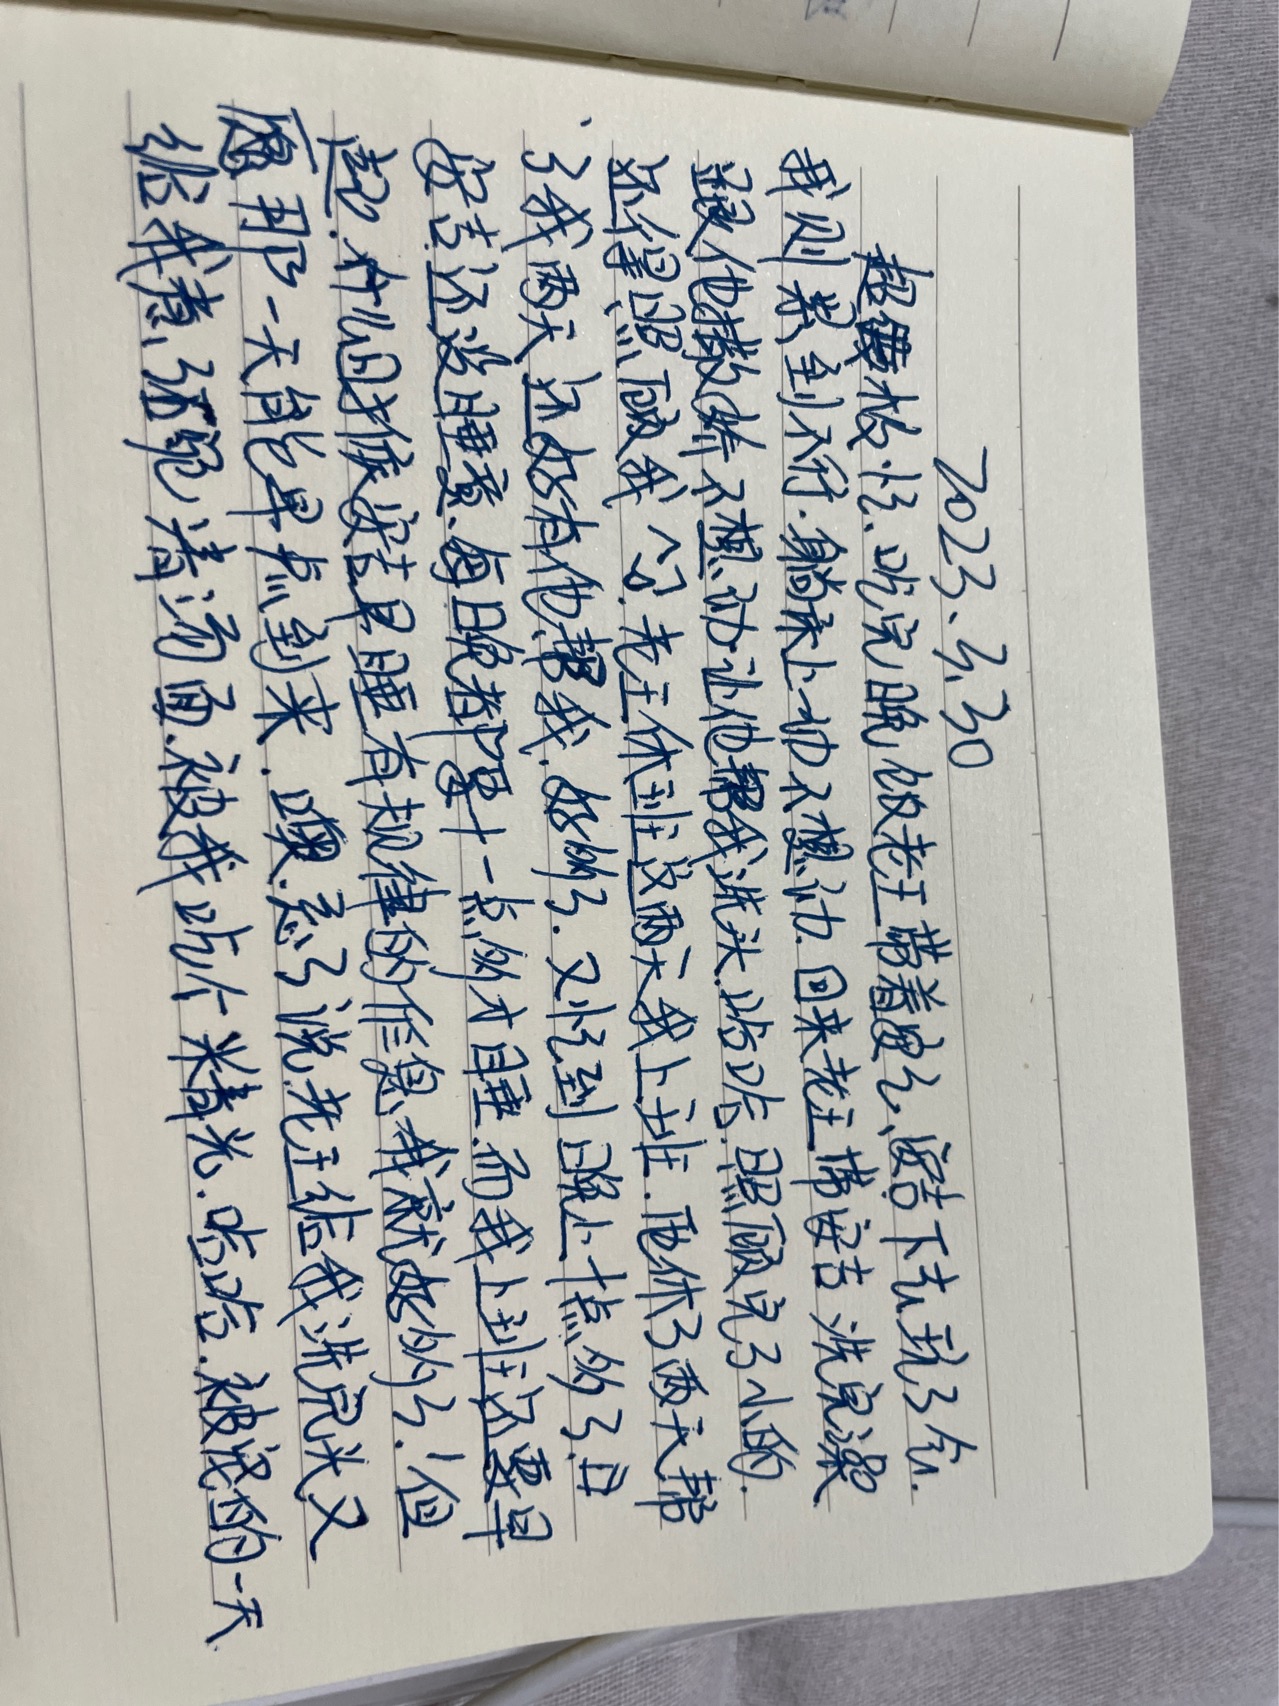 2023.3.30
超疲 吃完晚饭老王带着 安吉下去玩了会.
我则累到不行.躺床上动不想动.回来老王带安吉洗完澡
跟他撒娇不想动让他帮我洗头.哈哈.照顾完了小的.
还得照顾我 老王休班这两天我上班.他休了两天帮
了我两天还好有他帮我.好的了.又忙到晚上十点多了.
安吉还没睡意.每日晚都要十一点多才睡.而我上班还要早
起.什么时候安吉早睡有规律的作息.我就好多了.但
愿那一天能早点到来.噢.忘了说.老王给我洗完头又
给我煮了碗清汤面.被我吃个精光.哈哈.被宠的一天